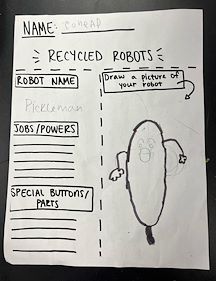 NAME:
RECYCLED ROBOTS
ROBOT NAME
Pickleman
JOBS/POWERS
SPECIAL BUTTONS/
PARTS
Draw a picture of
your robot